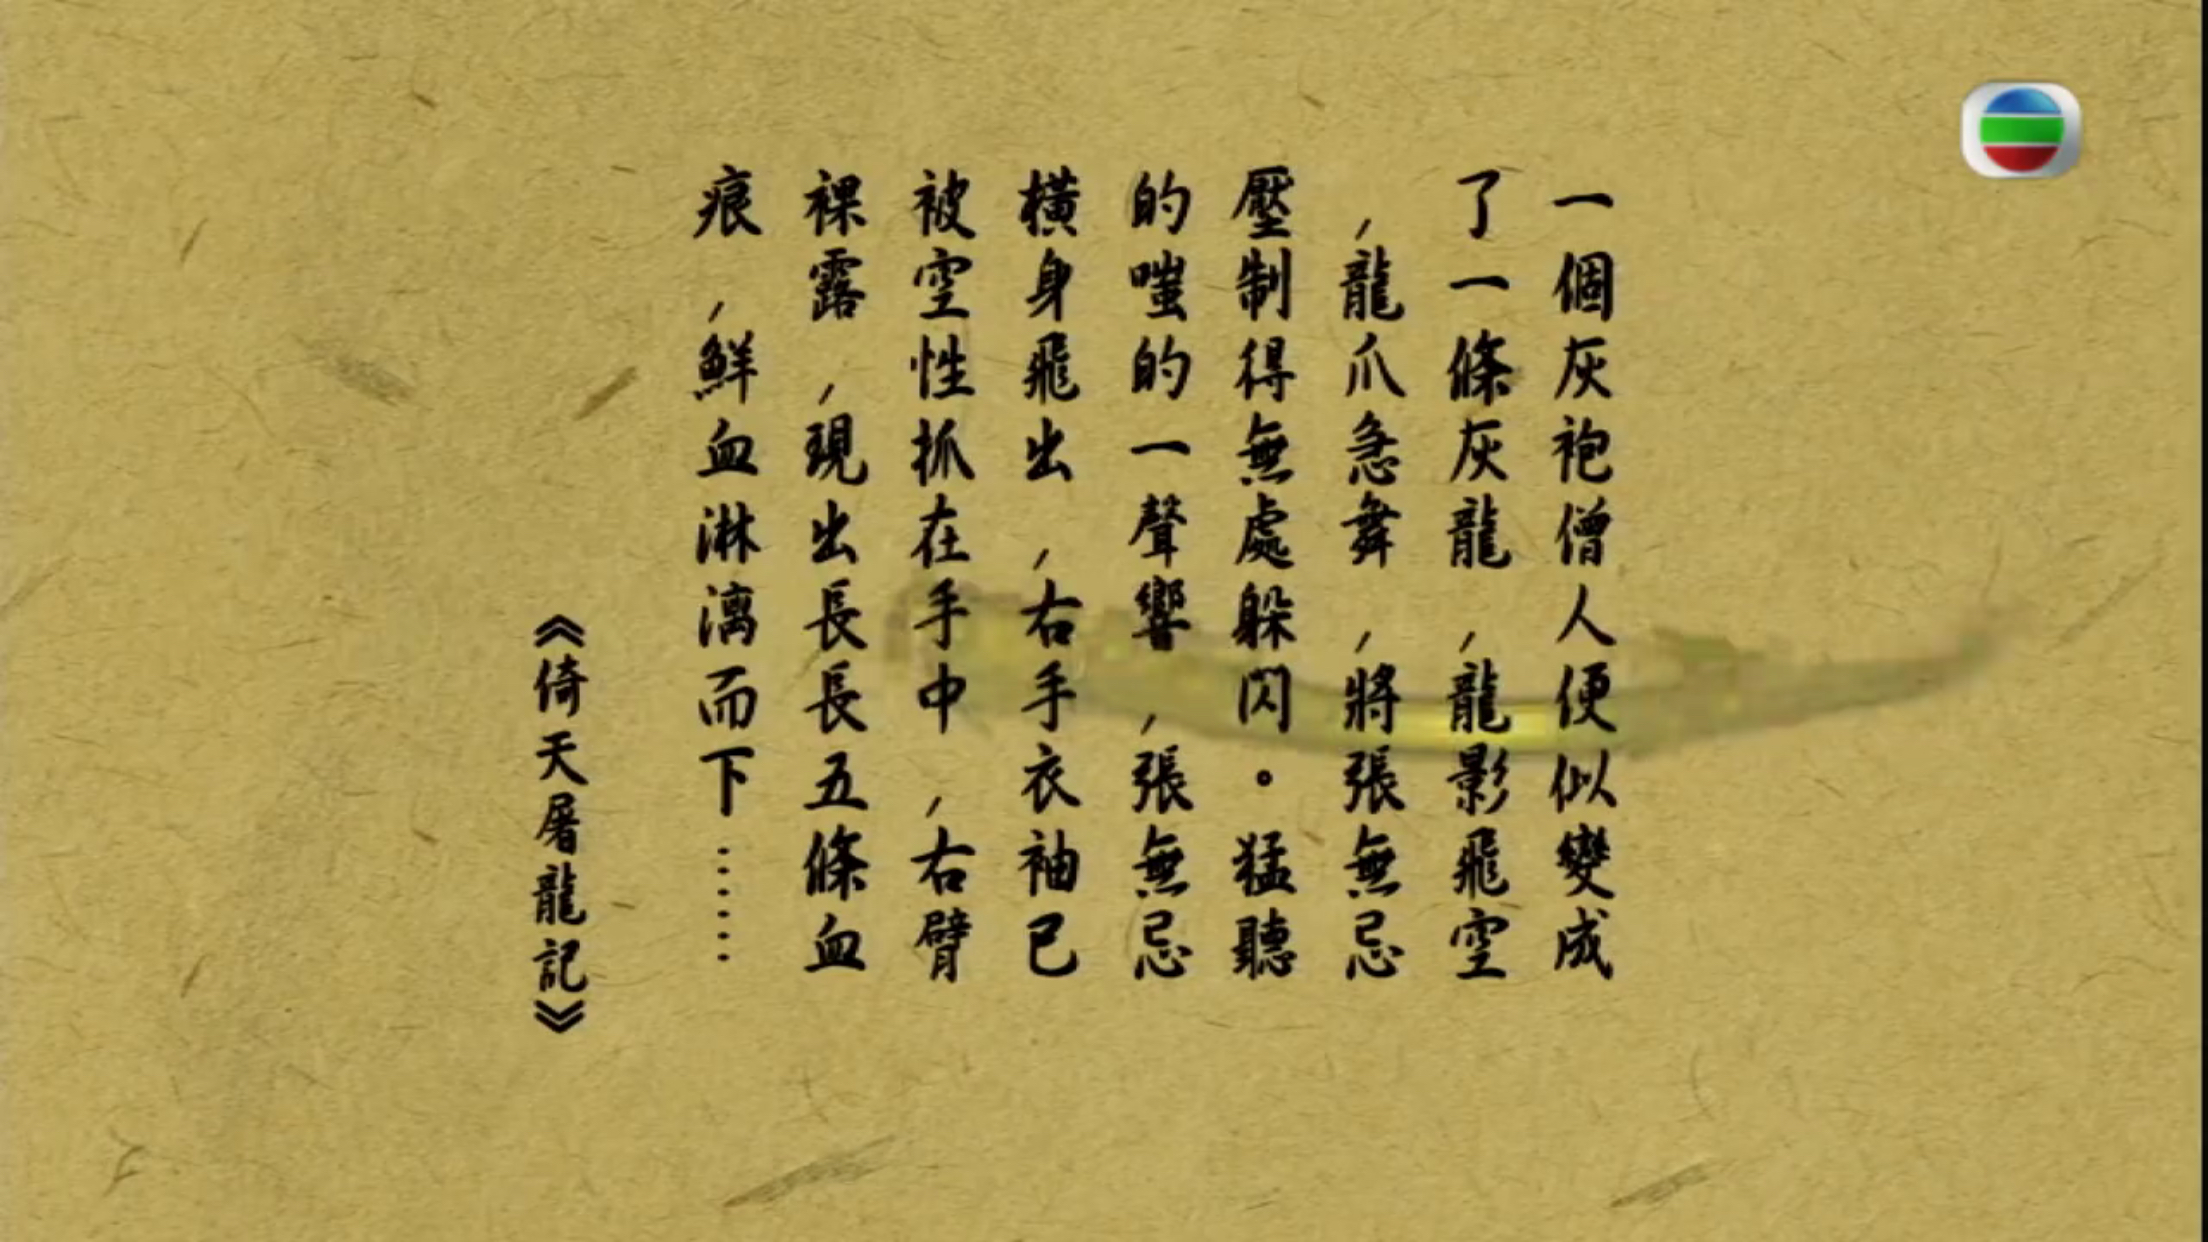 一個灰袍僧人便似變成
了一條灰龍，龍影飛空
，龍爪急舞，將張無忌
壓制得無處躲閃。猛聽
的嗤的一聲響，張無忌
橫身飛出，右手衣袖已
被空性抓在手中，右臂
裸露，現出長長五條血
痕，鮮血淋漓而下……
《倚天屠龍記》